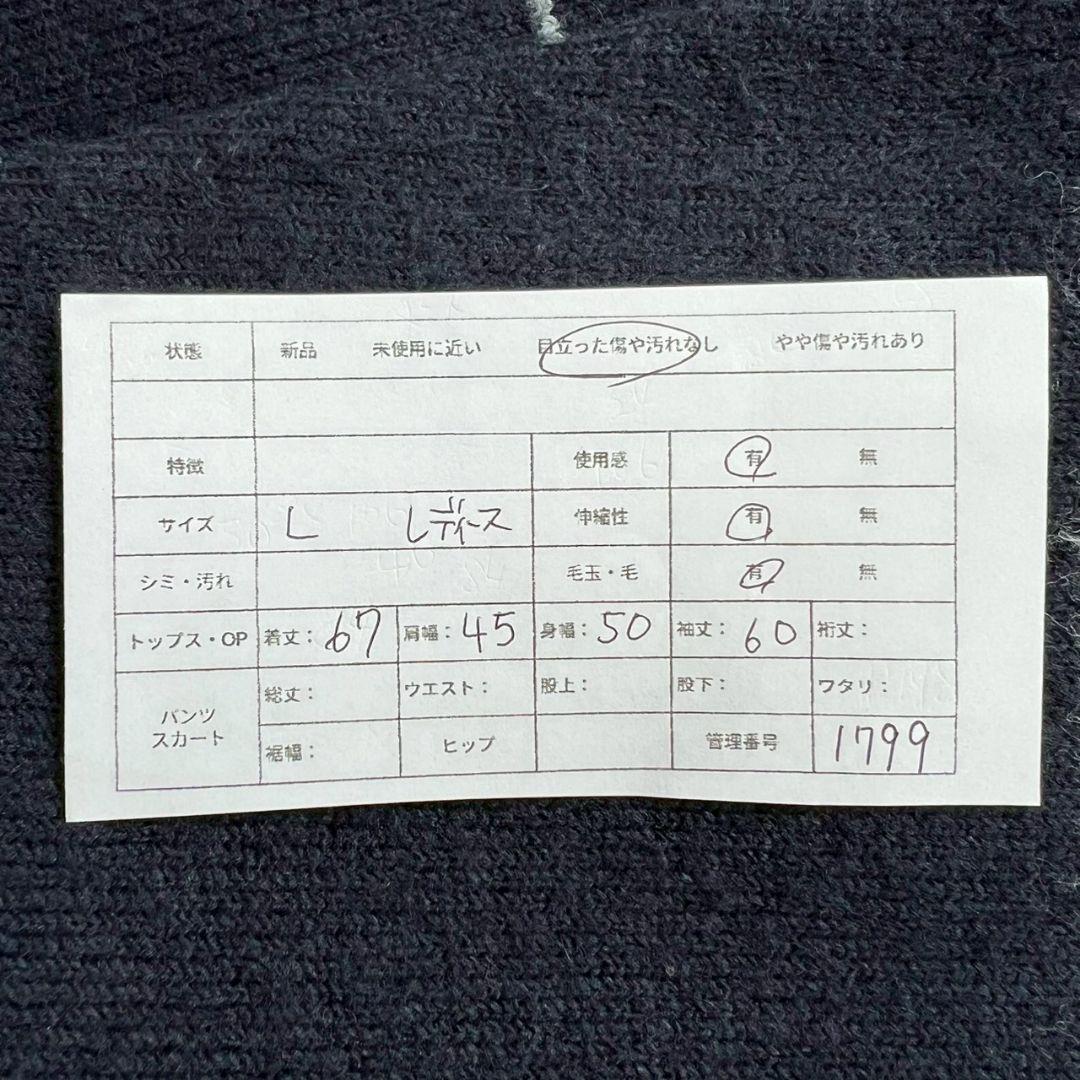 状態 新品 未使用に近い 目立った傷や汚れなし やや傷や汚れあり
特徴 使用感 有 無
サイズ L レディース 伸縮性 有 無
シミ・汚れ 毛玉・毛 有 無
トップス・OP 着丈： 67 肩幅： 45 身幅： 50 袖丈： 60 裄丈：
パンツ スカート
総丈： ウエスト： 股上： 股下： ワタリ：
裾幅： ヒップ 管理番号 1799